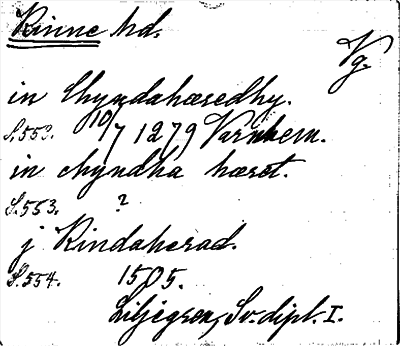 Kinne hd.
Vg.
in Chyndahæredhy.
S. 553. 10/7 1279 Varnhem.
in chyndha hæret.
S. 553. ?
j Kindaherad.
S. 554. 1505.
Liljegren, Sv. dipl. I.